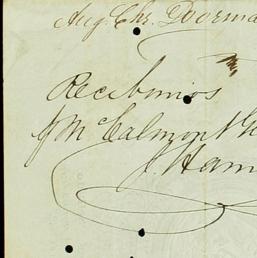 Aug. Chr. Doorma
Recibimos
J Mc Calmont
J. Ham